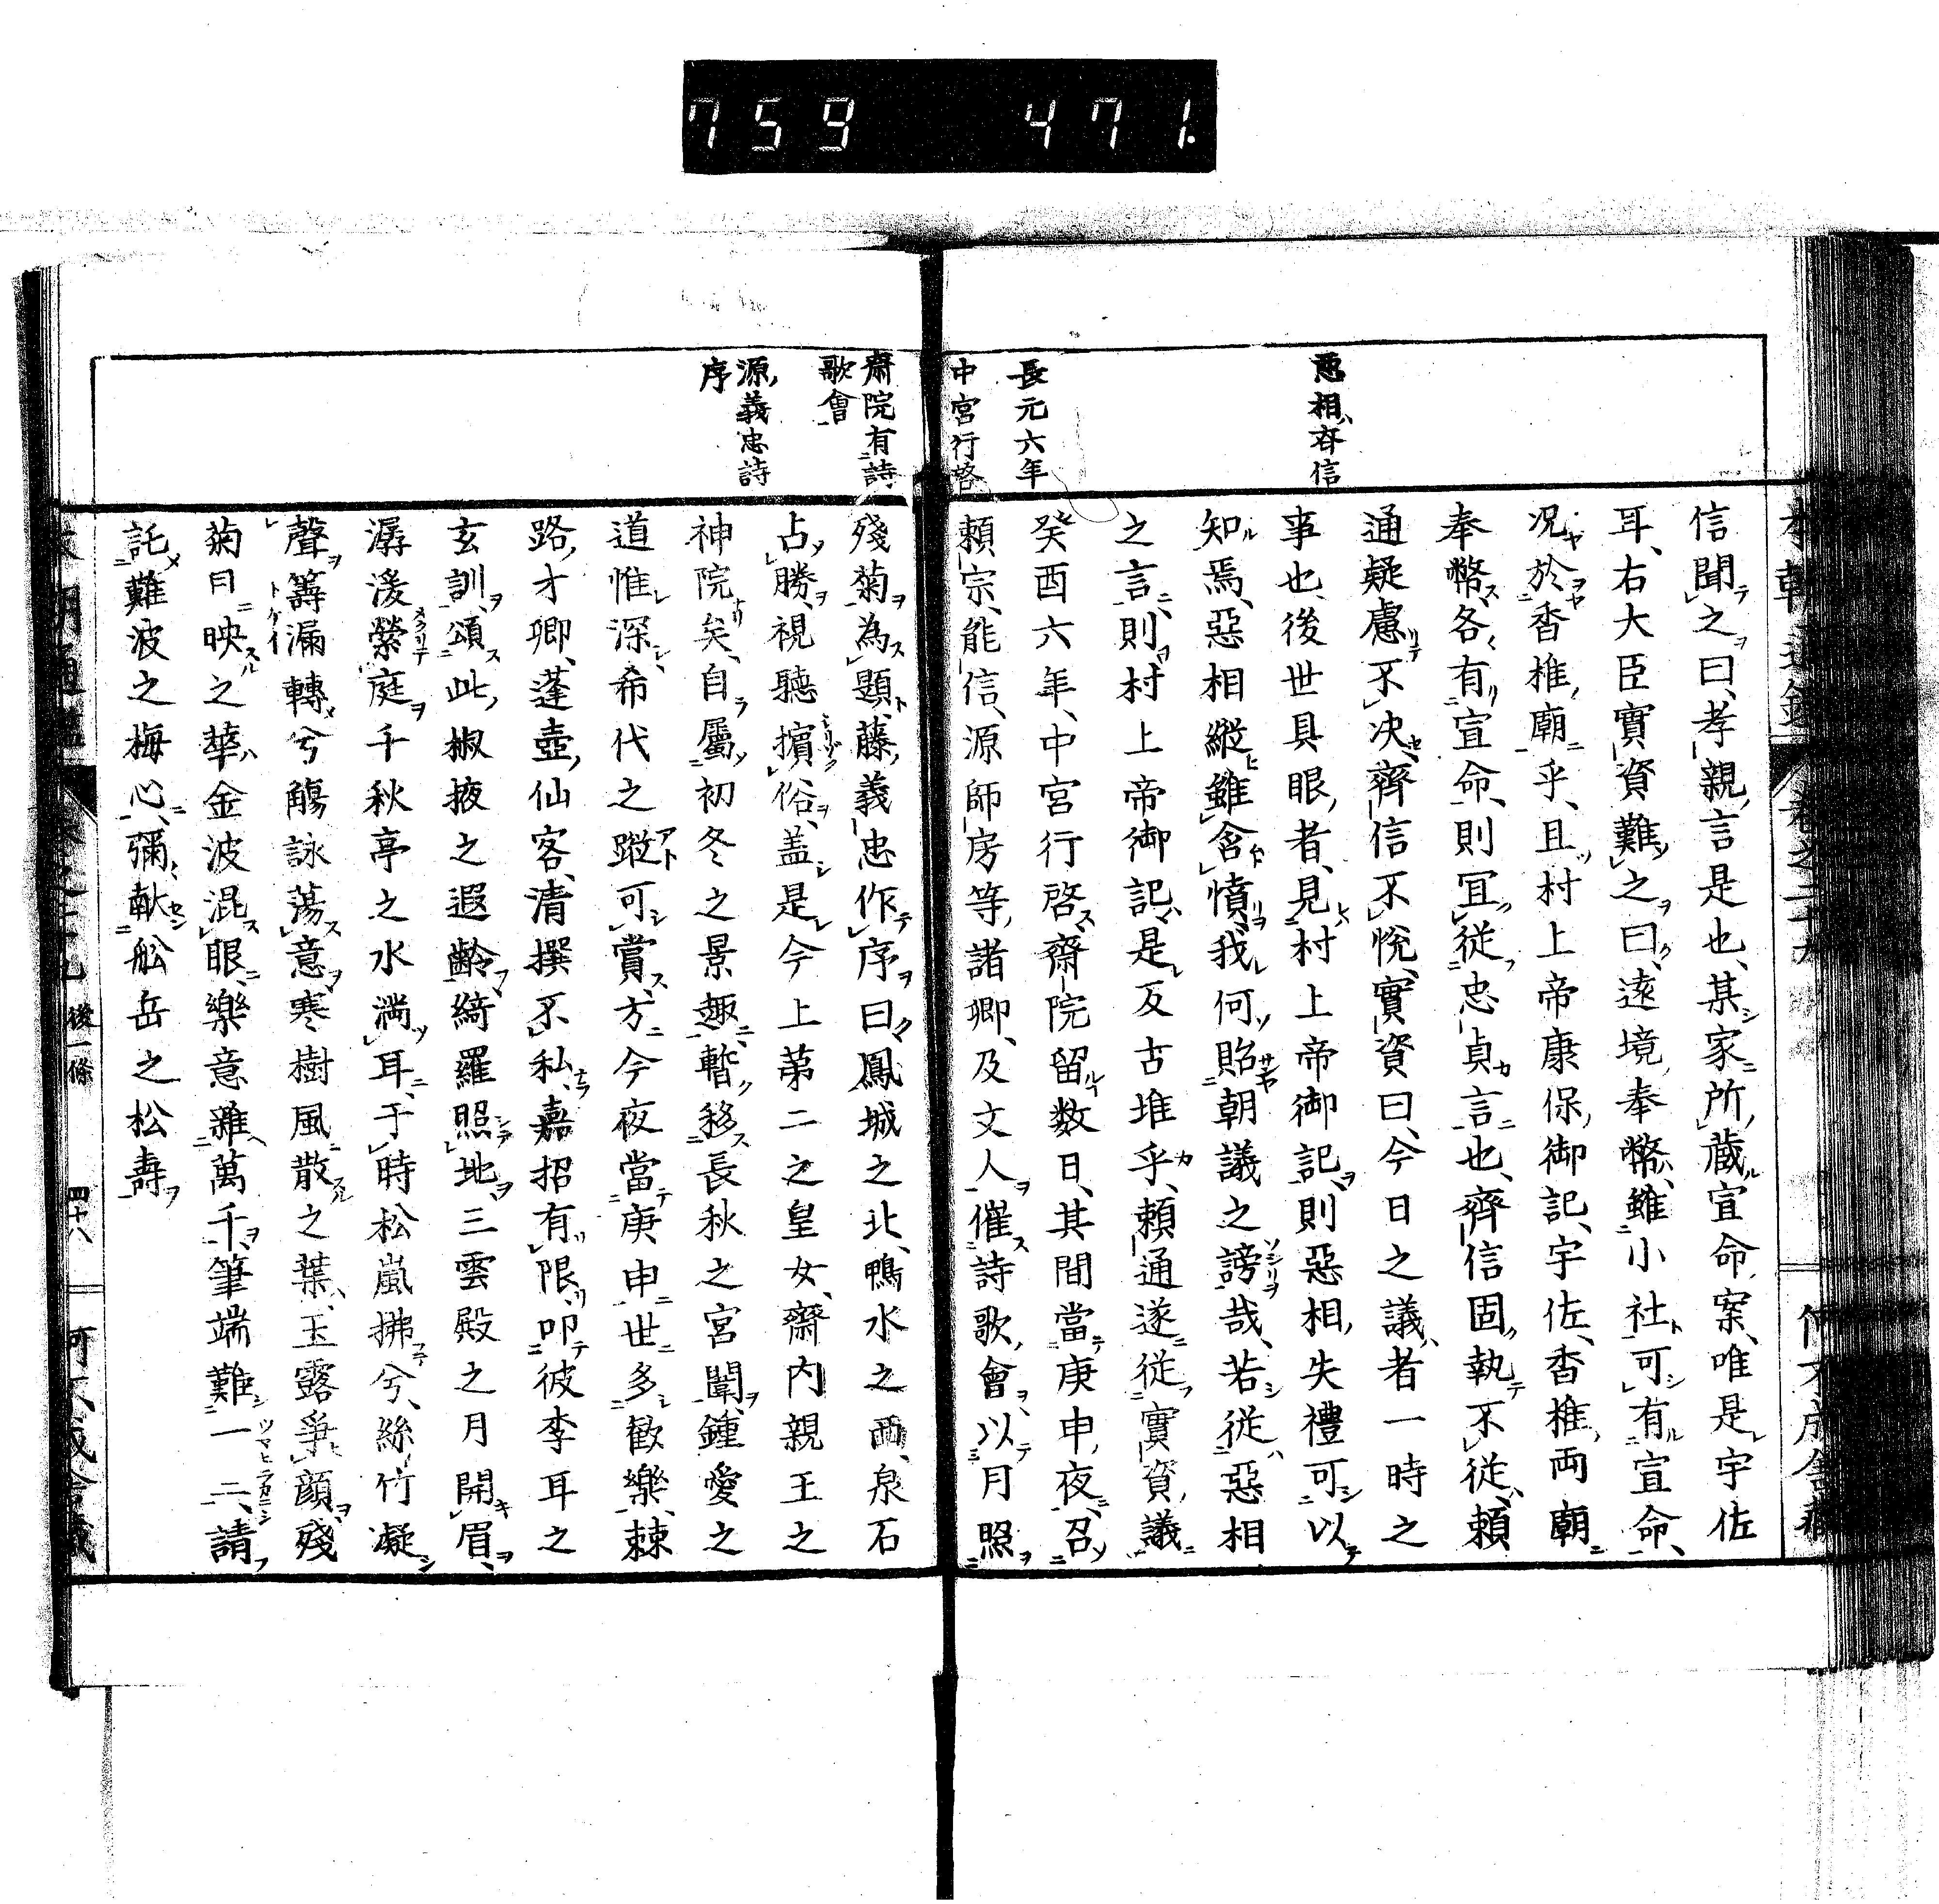 759 471.
悪相齊信
信聞之曰、孝親言是也、某家所藏宣命案、唯是宇佐
耳、右大臣實資難之曰、遠境奉幣、雖小社可有宣命、
况於香椎廟乎、且村上帝康保御記、宇佐、香椎両廟
奉幣、各有宣命、則冝從忠貞言也、齊信固執不從、頼
通疑慮不决、齊信不悅、實資曰、今日之議者一時之
事也、後世具眼者、見村上帝御記、則惡相失禮可以
知焉、惡相縱雖含憤、我何貽朝議之謗哉、若從惡相
之言、則村上帝御記、是反古堆乎、頼通遂從實資議
長元六年
中宮行啓
癸酉六年、中宮行啓齋院留数日、其間當庚申夜、召
頼宗、能信、源師房等諸卿、及文人催詩歌會、以月照
齋院有詩
歌會
源義忠詩
序
殘菊為題、藤義忠作序曰、鳳城之北、鴨水之西、泉石
占勝、視聽擯俗、盖是今上第二之皇女、齋内親王之
神院矣、自屬初冬之景趣、暫移長秋之宮闈、鍾愛之
道惟深、希代之蹤可賞、方今夜當庚申、世多歡樂、棘
路才卿、蓬壺仙客、清撰不私、嘉招有限、叩彼李耳之
玄訓、頌此椒掖之遐齡、綺羅照地、三雲殿之月開眉、
潺湲縈庭、千秋亭之水満耳、于時松嵐拂兮、絲竹凝
聲、籌漏轉兮、觴詠蕩意、寒樹風散之葉、玉露爭顔、殘
菊月映之華、金波混眼、樂意雖萬千、筆端難一二、請
託難波之梅心、彌献舩岳之松壽
後一條 四十八